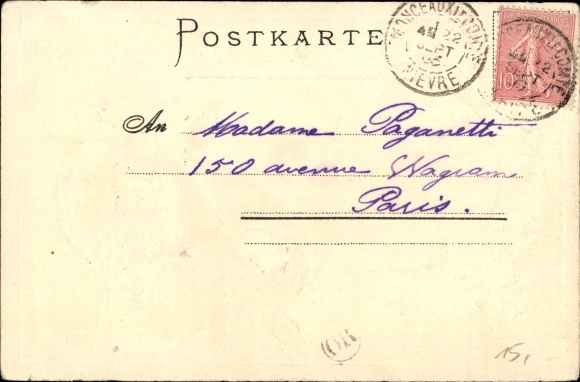 POSTKARTE
MONCEAUX LE COMTE
22
SEPT
NIEVRE
10
An Madame Paganetti
150 avenue Wagram
Paris.
OR
15,